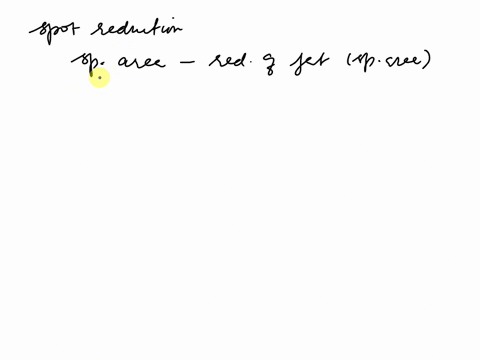 spot reduction
sp. area - red. of fat (sp. area)